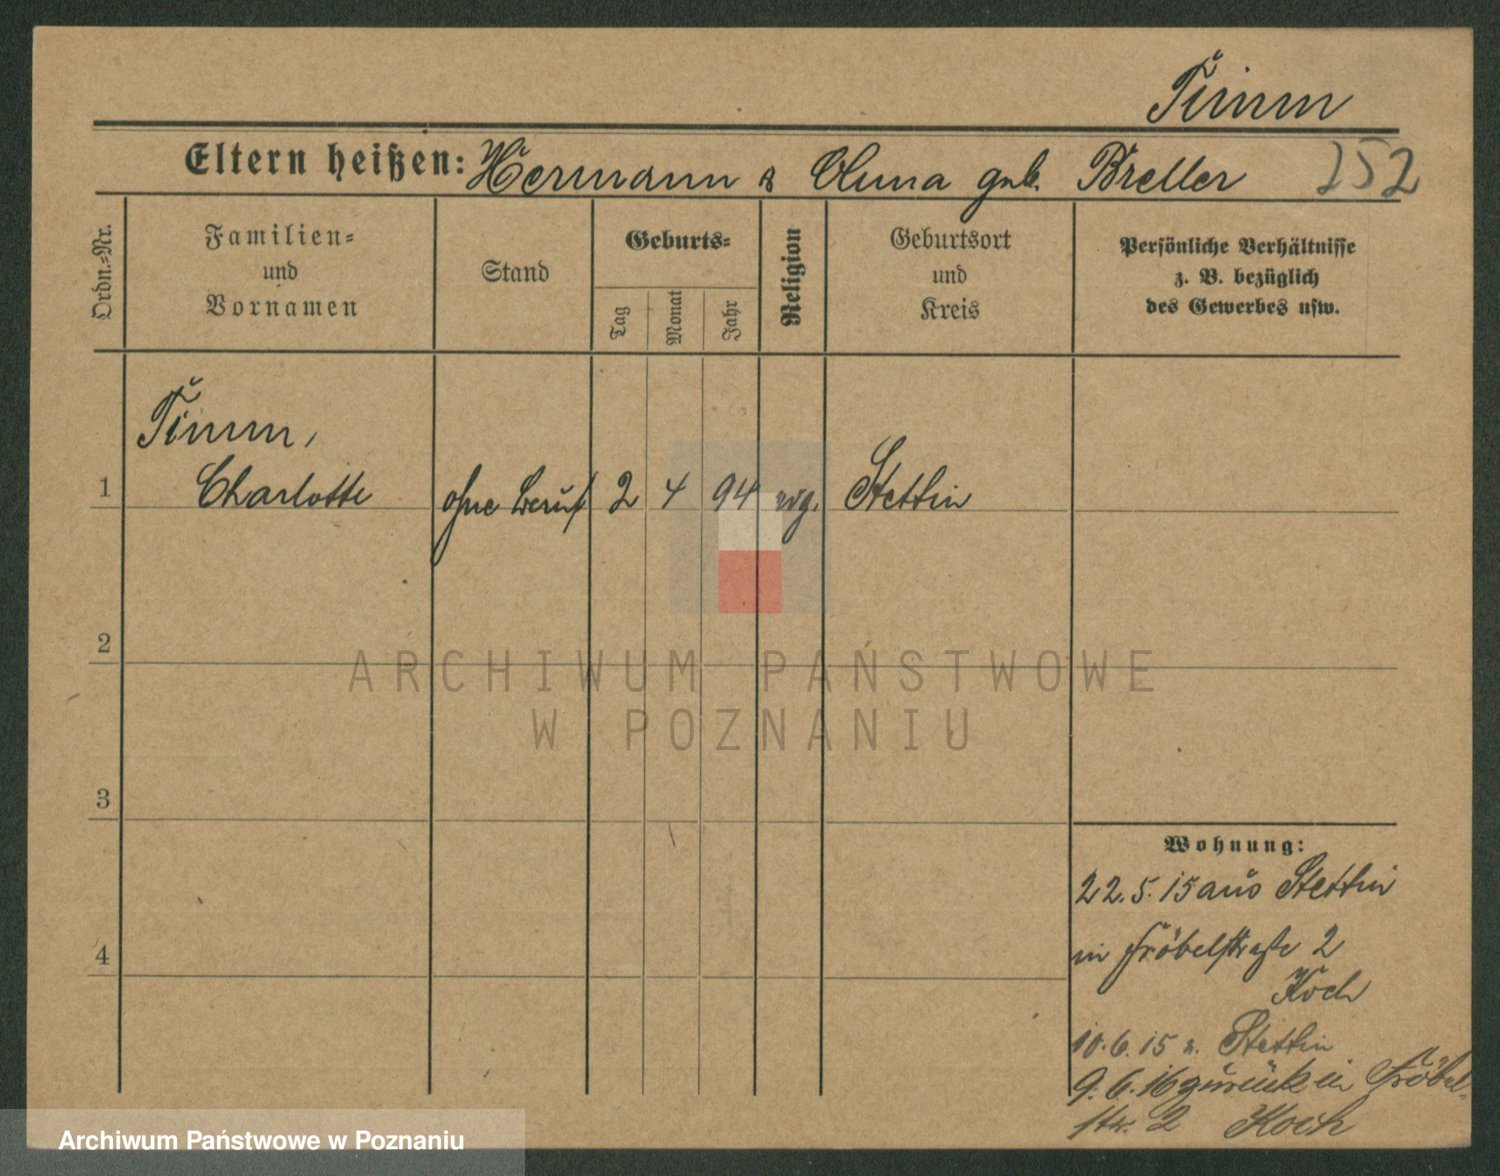 Timm
Eltern heißen: Hermann & Anna geb. Breller 252
Ordn.-Nr.
Familien-
und
Vornamen
Stand
Geburts-
Tag
Monat
Jahr
Religion
Geburtsort
und
Kreis
Persönliche Verhältnisse
z. B. bezüglich
des Gewerbes usw.
Timm,
1 Charlotte ohne Beruf 2 4 94 evg. Stettin
2
3
4
ARCHIWUM PAŃSTWOWE
W POZNANIU
Wohnung:
22.5.15 aus Stettin
in Fröbelstraße 2
Koch
10.6.15 n. Stettin
9.6.16 zurück in Fröbel-
str. 2 Koch
Archiwum Państwowe w Poznaniu